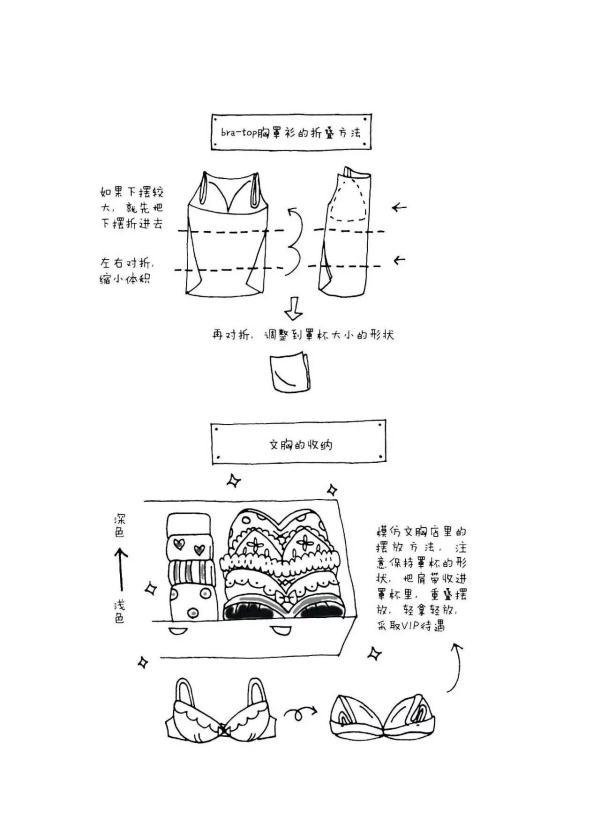 bra-top胸罩衫的折叠方法
如果下摆较
大，就先把
下摆折进去
左右对折，
缩小体积
再对折，调整到罩杯大小的形状
文胸的收纳
深色
浅色
模仿文胸店里的
摆放方法，注
意保持罩杯的形
状，把肩带收进
罩杯里，重叠摆
放，轻拿轻放，
采取VIP待遇